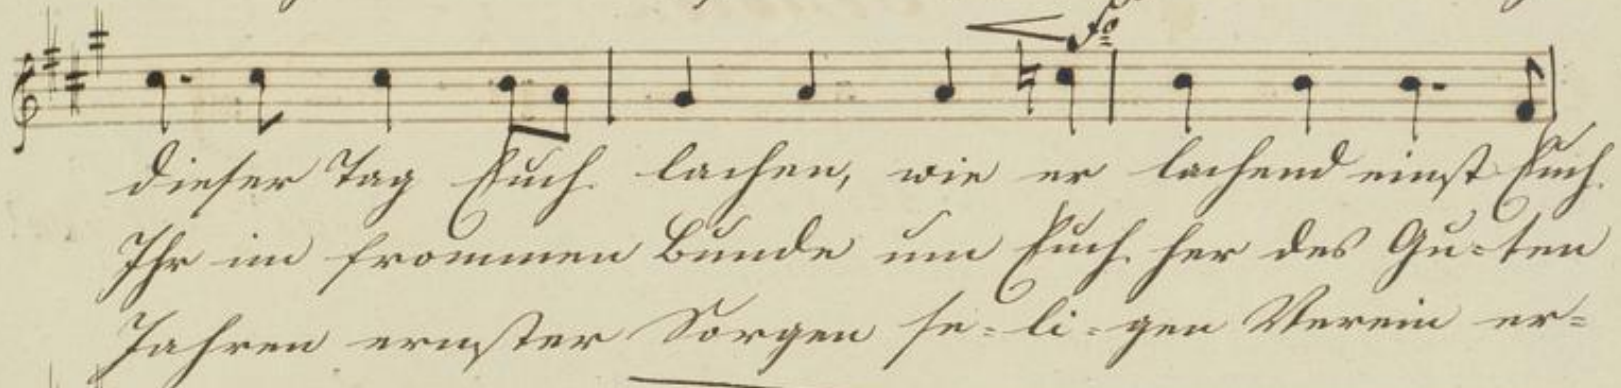 fo
dieser Tag Euch lachen, wie er lachend einst Euch
Ihr im frommen Bunde um Euch her des Gu=ten
Jahren ernster Sorgen se=li=gen Verein er=